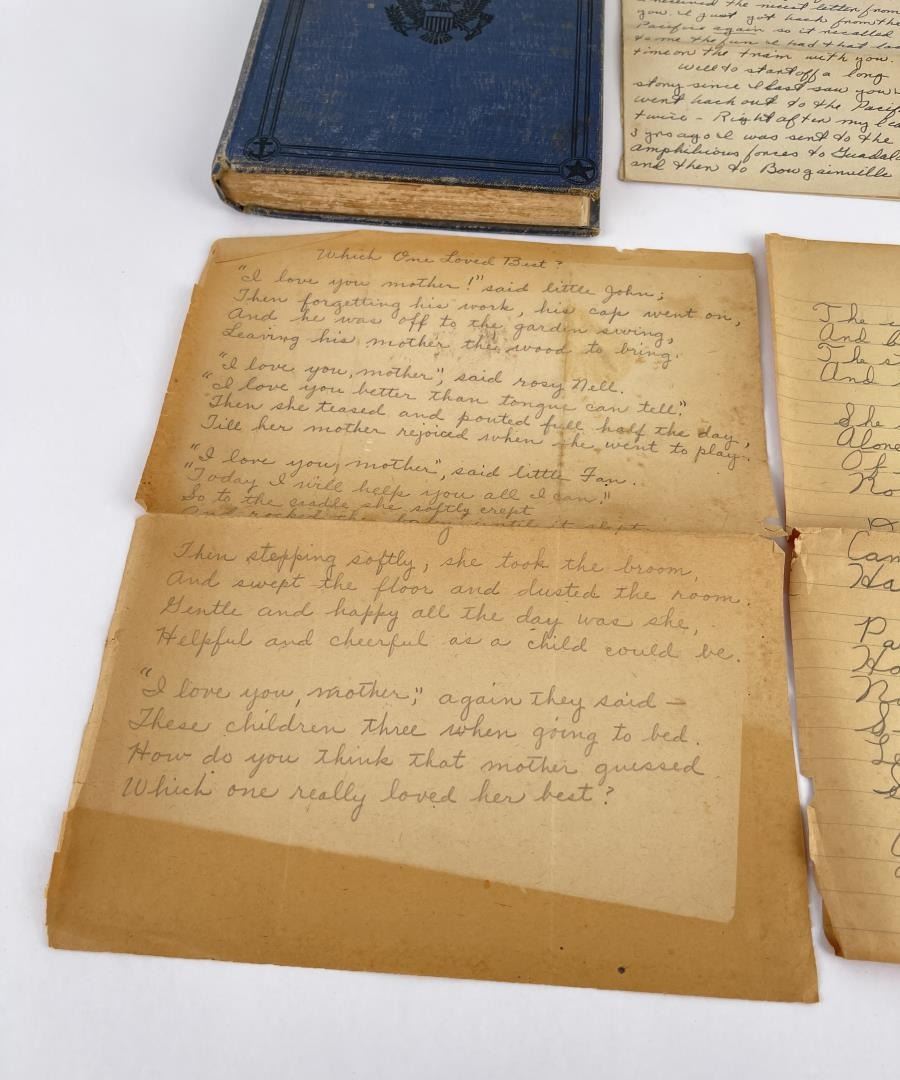 received the nicest letter from
you. I just got back from the
Pacific again so it recalled
to me the fun I had that last
time on the train with you.
Well to start off a long
story since I last saw you
went back out to the Pacific
twice - Right after my
3 yrs ago I was sent to the
amphibious forces to
and then to Bougainville
Which One Loved Best?
"I love you mother!" said little John;
Then forgetting his work, his cap went on,
And he was off to the garden swing,
Leaving his mother the wood to bring.
"I love you, mother", said rosy Nell.
"I love you better than tongue can tell".
Then she teased and pouted full half the day,
Till her mother rejoiced when she went to play.
"I love you, mother", said little Fan.
"Today I will help you all I can."
So to the cradle she softly crept
And rocked the baby until it slept.
Then stepping softly, she took the broom,
And swept the floor and dusted the room.
Gentle and happy all the day was she,
Helpful and cheerful as a child could be.
"I love you, mother", again they said —
These children three when going to bed.
How do you think that mother guessed
Which one really loved her best?
The
And
The
And
She
Alone
Of